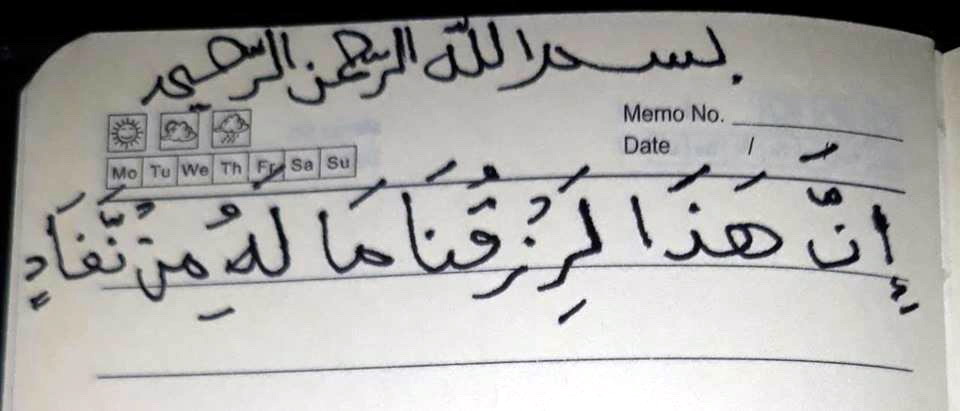 بسم الله الرحمن الرحيم
Memo No.
Date /
Mo Tu We Th Fr Sa Su
إِنَّ هَذَا لَرِزْقُنَا مَا لَهُ مِنْ نَّفَادٍ